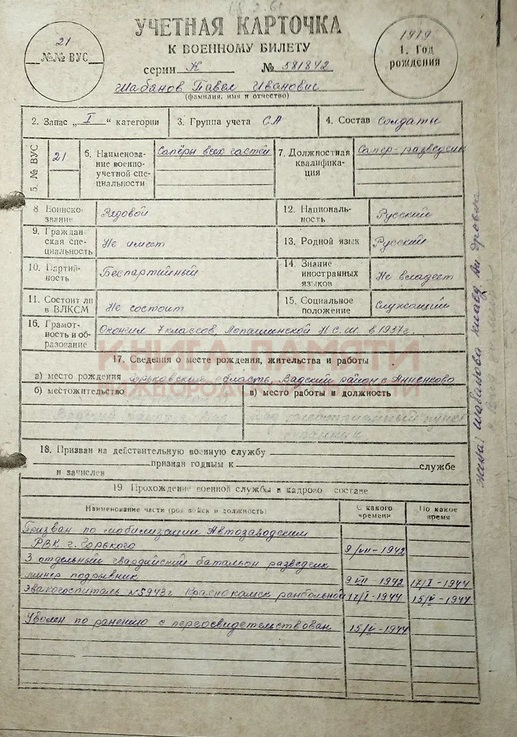 УЧЕТНАЯ КАРТОЧКА
К ВОЕННОМУ БИЛЕТУ
21
№№ ВУС
1919
1. Год
рождения
серии № 581842
Шабанов Павел Иванович
(фамилия, имя и отчество)
2. Запас „I“ категории
3. Группа учета СА
4. Состав солдаты
5. № ВУС 21
6. Наименование военно-учетной специальности Сапёры всех частей
7. Должностная квалификация Сапер-разведчик
8 Воинское звание Рядовой
12. Национальность Русский
9. Гражданская специальность Не имеет
13. Родной язык Русский
10. Партийность Беспартийный
14. Знание иностранных языков Не владеет
11. Состоит ли в ВЛКСМ Не состоит
15. Социальное положение Служащий
16. Грамотность и образование Окончил 7 классов Лопатинской Н.С.Ш. в 1937 г.
КНИГА ПАМЯТИ
17. Сведения о месте рождения, жительства и работы
а) место рождения Горьковская область, Вадский район с. Анненково
б) местожительство
в) место работы и должность
18. Призван на действительную военную службу
признан годным к службе
и зачислен
19. Прохождение военной службы в кадровом составе
Наименование части (род войск и должность)
С какого времени
По какое время
Призван по мобилизации Автозаводским
РВК г. Горького 9/VII-1942
3 отдельный гвардейский батальон разведчик
минер подрывник 9/VII 1942 17/I-1944
Эвакогоспиталь №5943 г. Краснокамск ранбольной 17/I-1944 15/V-1944
Уволен по ранению с переосвидетельствован 15/V-1944